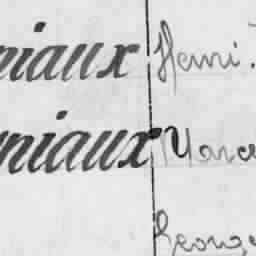 niaux Henri
niaux Marce
George